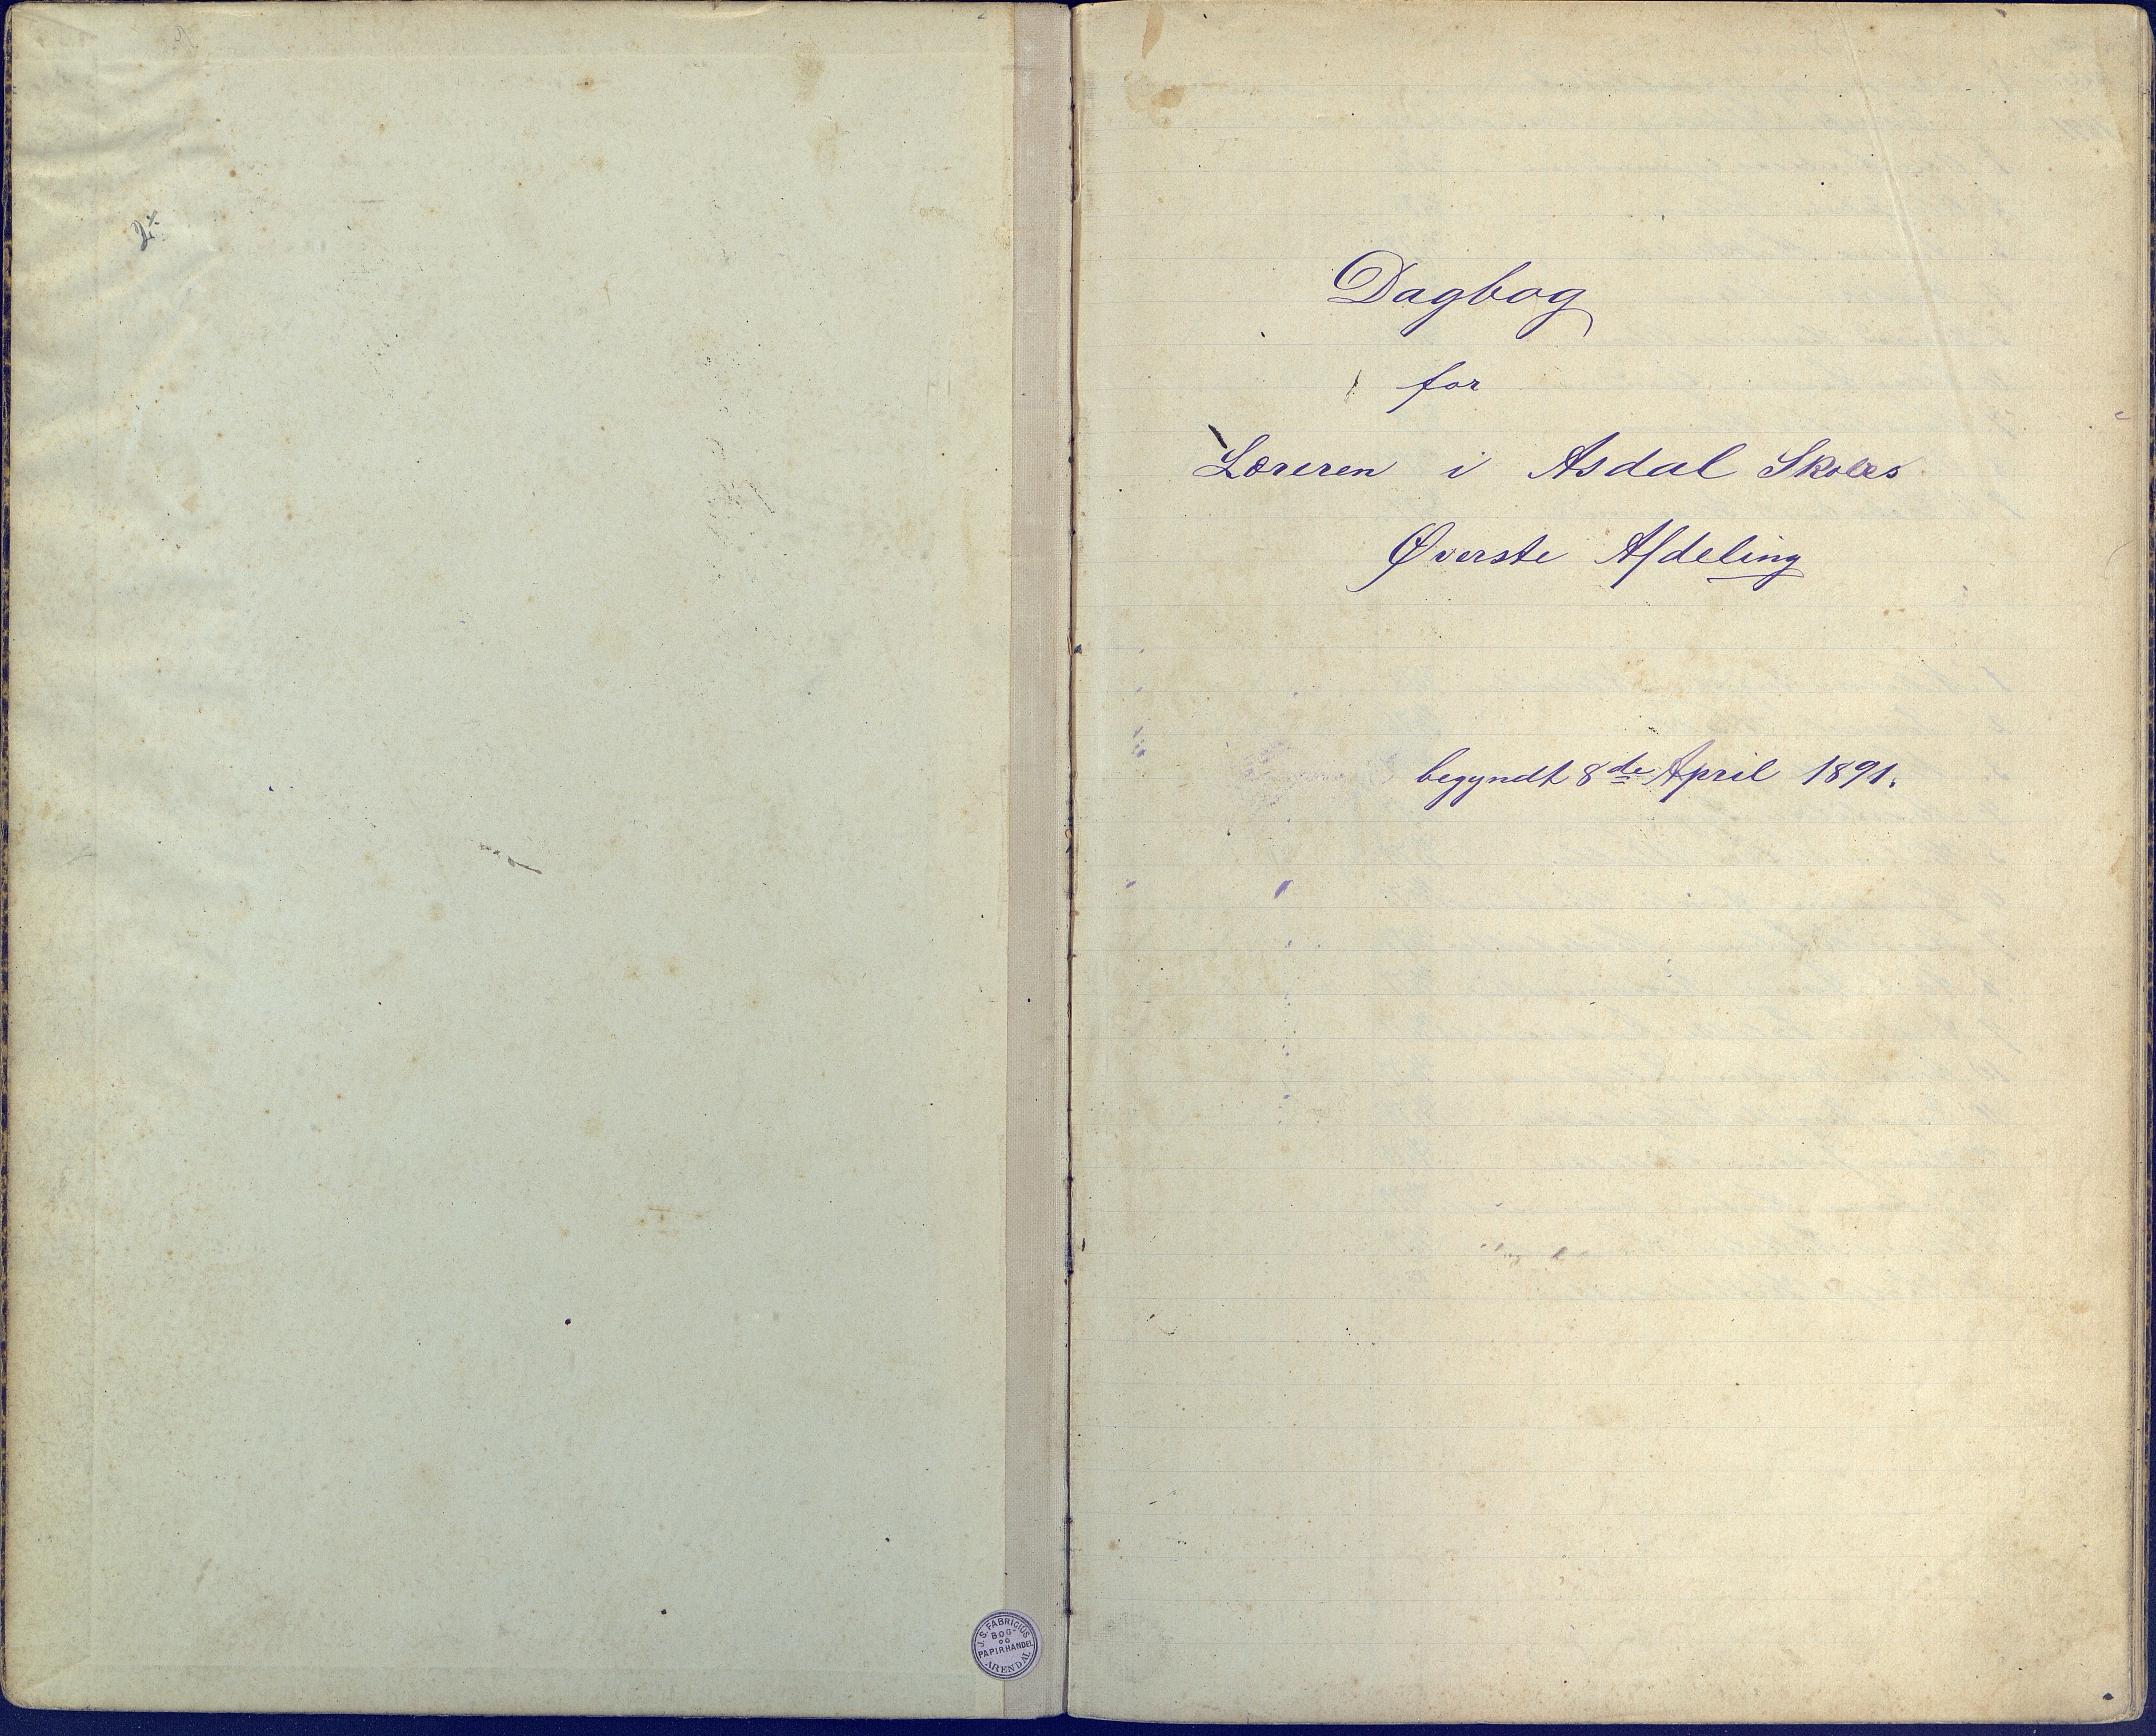 Dagbog
for
Læreren i Asdal Skoles
Øverste Afdeling
begyndt 8de April 1891.
J. S. FABRICIUS
BOG-
OG
PAPIRHANDEL
ARENDAL